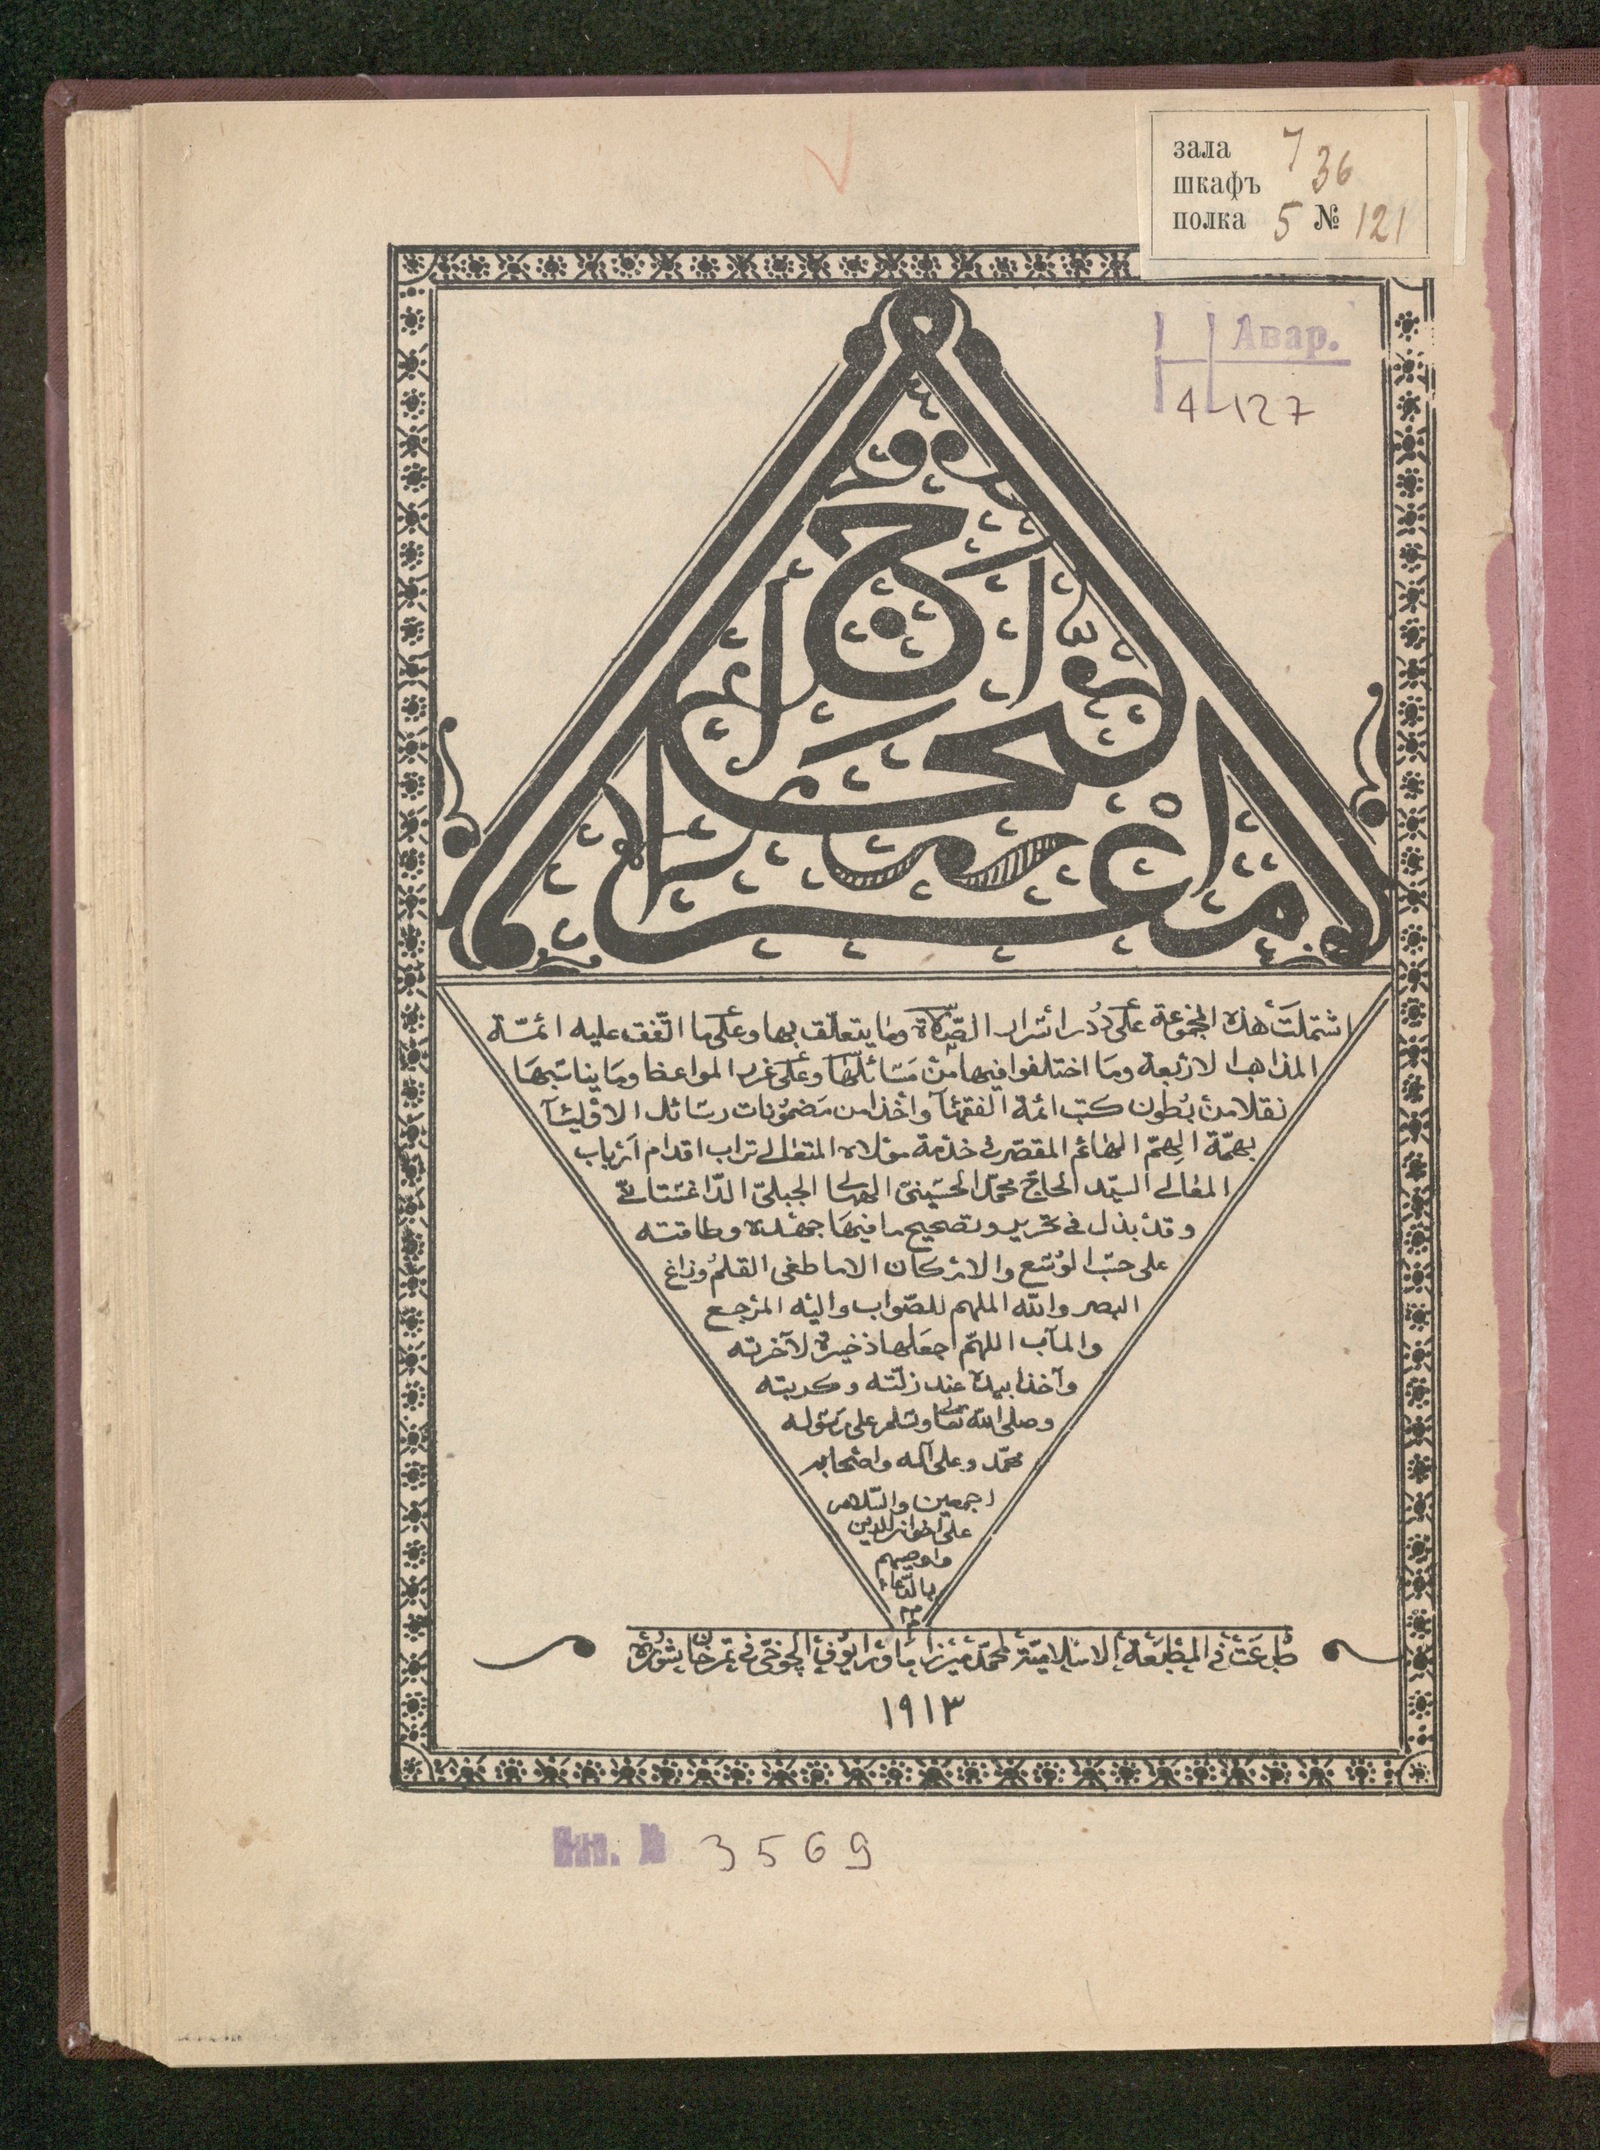 зала 7
шкафъ 36
полка 5 № 121
Авар.
4-127
اشتملت هذه المجموعة على دُرر اسرار الصّلاة وما يتعلّق بها وعلى ما اتّفق عليه ائمّة
المذاهب الاربعة وما اختلفوا فيها من مسائلها وعلى غرر المواعظ وما يناسبها
نقلا من بُطون كتب ائمة الفقهآ وأخذا من مضمونات رسائل الاوليآ
بهمّة الهمّ الهائم المقصّر في خدمة مولاه المتعالي تراب اقدام ارباب
المعالي السيّد الحاجّ محمّد الحسينيّ الهدلي الجبليّ الدّاغستانيّ
وقد بذل في تحرير وتصحيح ما فيها جهده وطاقته
على حسب الوُسع والامكان الا ما طغى القلمُ وزاغ
البصر والله الملهم للصّواب واليه المرجع
والمآب اللهمّ اجعلها ذخيرة لآخرته
وآخذا بيده عند زلّته وكربته
وصلى الله تعالى وسلم على رسوله
محمّد وعلى آله واصحابه
اجمعين والسّلام
على اخواني الدين
واوصيهم
بالدّعاء
طُبِعَت في المطبَعة الاسلاميّة لمحمّد ميرزا ماورايوف الچوخيّ في تمرخان شوره
١٩١٣
Ин. № 3569